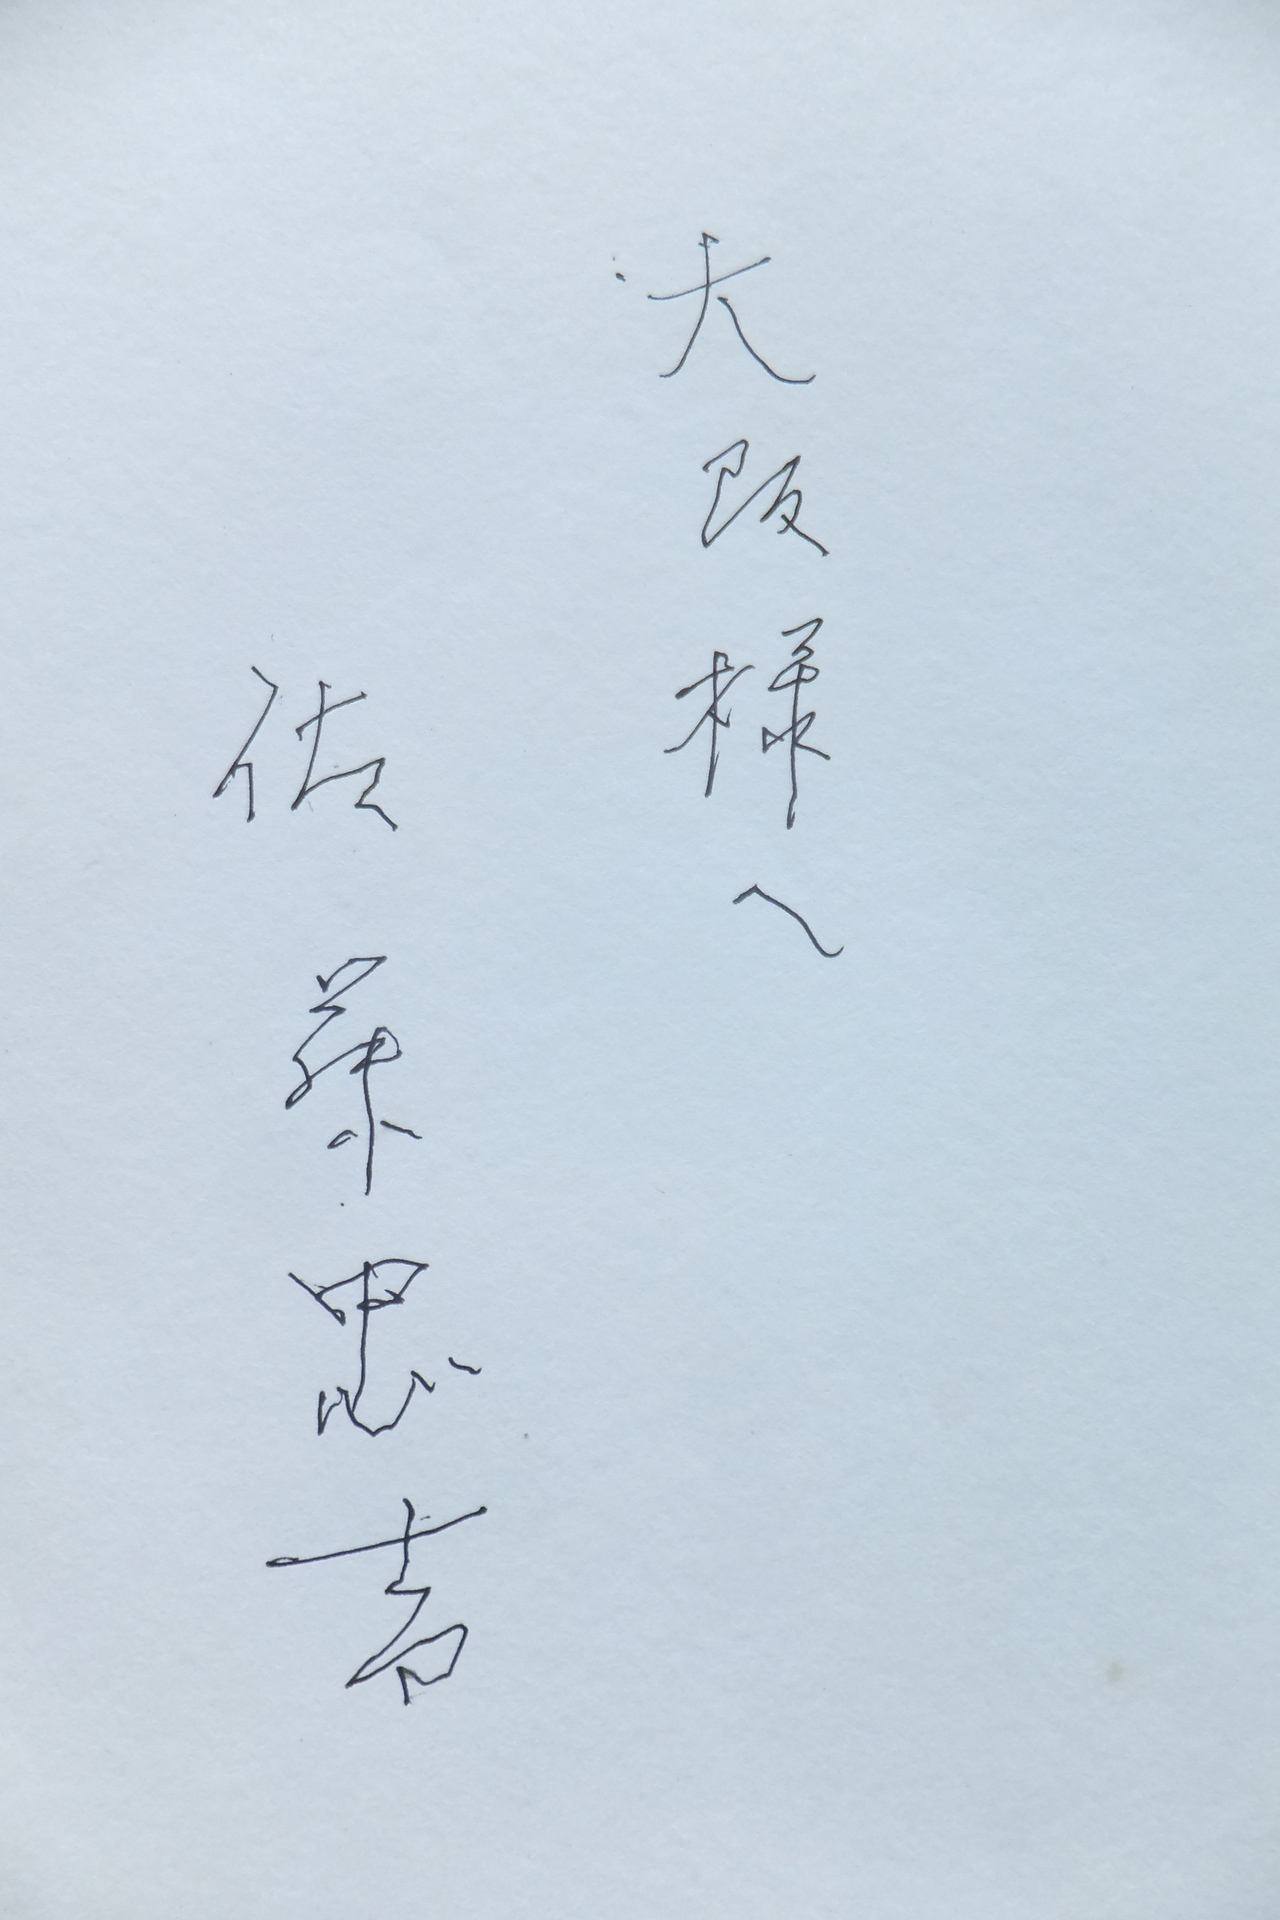 大阪様へ
佐藤忠吉